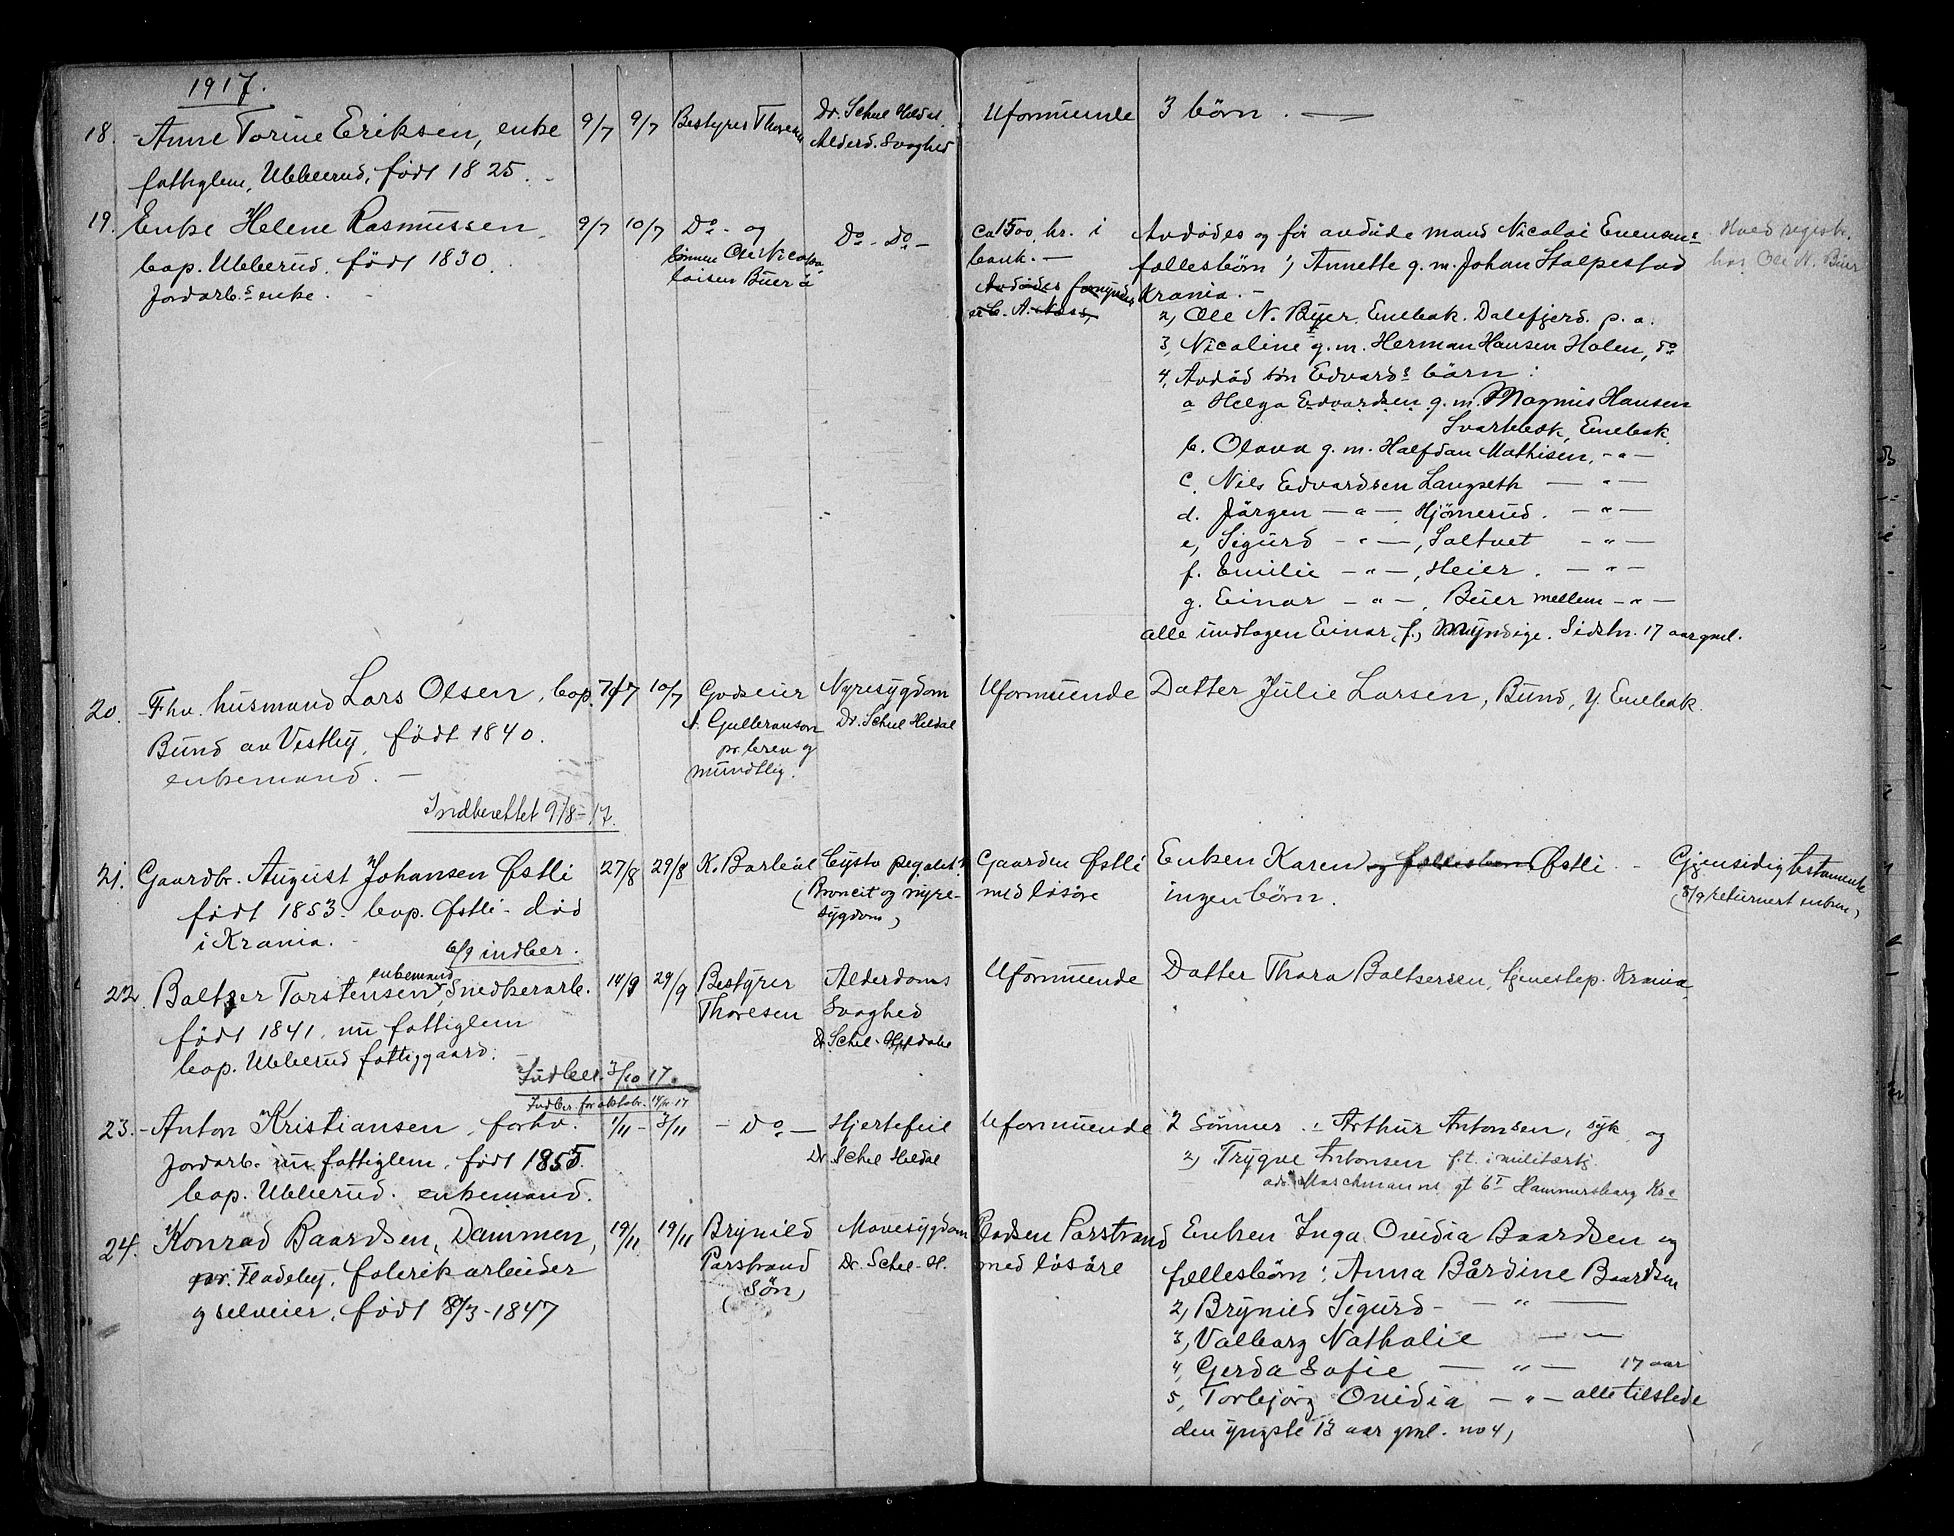 1917.
18. Anne Torine Eriksen, enke 9/7 9/7 Bestyrer Thoresen Dr. Schul Heldal. Uformuende 3 börn. —
fattiglem, Ubberud, født 1825. Alderd. Svaghed
19. Enke Helene Rasmussen 9/7 10/7 Do - og Do - Do - ca 1500 kr. i Avdödes og för avdöde mand Nicolai Evensens
bop. Ubberud. født 1830. sönnen Ole Nicolai bank. — fællesbörn 1, Annette g. m. Johan Stalpestad
Jordarb.s enke. — laisen Büer Avdödes formynder Krania. -
er C. A. Næss,
2, Ole N. Byer. Enebak. Dalefjerd. p. a.
3, Nicoline g. m. Herman Hansen Holen, do
4, Avdöd sön Edvards börn:
a Helga Edvardsen g. m. Magnus Hansen
Svartebæk, Enebak.
b. Olava g. m. Halfdan Mathisen, - " -
c. Nils Edvardsen Langseth — " —
d. Jörgen — " —, Hjömerud. — " —
e, Sigurd — " —, Saltvet — " —
f. Emilie — " —, Heier. — " —
g. Einar — " —, Büer mellem — " —
alle undtagen Einar, f, Myndige. Sidstn. 17 aar gml.
Hved registr.
hos Ole N. Büer
20. Fhv. husmand Lars Olsen, bop. 7/7 10/7 Godseier Nyresygdom Uformuende Datter Julie Larsen, Bund, Y. Enebak.
Bund av Vestby, født 1840. A. Gulbranson Dr. Schul Heldal
enkemand. — pr. brev og
mundtlig.
Indberettet 9/8-17.
21. Gaardbr. August Johansen Østli 27/8 29/8 K. Barleül Gaarden Østli Enken Karen og fællesbörn Østli - Gjensidig testamente
født 1853. bop. Østli - död (Broncit og nyre- med lösöre ingen börn. (8/9 returnert enken)
i Krania. sygdom)
6/9 indber.
22. Baltzer Torstensen, enkemand Snedkerarb. 14/9 29/9 Bestyrer Alderdoms Uformuende Datter Thora Baltsersen, tjenestep. Krania
født 1841, nu fattiglem Thoresen Svaghed
bop. Ubberud fattiggaard. Dr. Schel-Heldahl
Indber. 3/10 17.
Indber. for oktobr.
23. Anton Kristiansen, forhv. 1/11 3/11 - Do - Hjertefeil Uformuende 2 Sönner: Arthur Antonsen, syk og
Jordarb. nu fattiglem, født 1855. Dr. Schel Heldal 2, Trygve Antonsen f. t. i militærtj.
bop. Ubberud. enkemand. adr. Marchmanns gt 6I Hammersborg Kra
24. Konrad Baardsen, Dammen, 19/11 19/11 Brynild Mavesygdom Pladsen Parstrand Enken Inga Ovidia Baardsen og
pr. Fladeby, fabrikarbeider Parstrand Dr. Schel-H. med lösöre fællesbörn: Anna Bårdine Baardsen
og selveier, født 8/3-1847 (Sön)
2, Brynild Sigurd - — " —
3, Valborg Nathalie — " —
4, Gerda Sofie — " — 17 aar
5, Torbjörg Ovidia — " — alle tilstede
den yngste 13 aar gml. no 4,